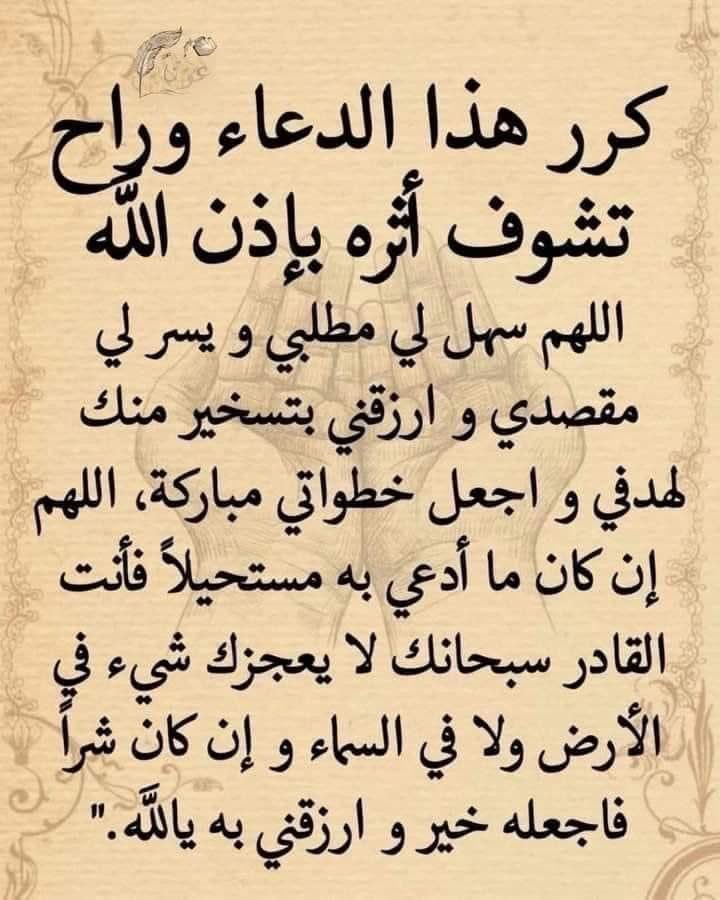 كرر هذا الدعاء وراح
تشوف أثره بإذن الله
اللهم سهل لي مطلبي و يسر لي
مقصدي و ارزقني بتسخير منك
لهدفي و اجعل خطواتي مباركة، اللهم
إن كان ما أدعي به مستحيلاً فأنت
القادر سبحانك لا يعجزك شيء في
الأرض ولا في السماء و إن كان شراً
فاجعله خير و ارزقني به ياللَّه."